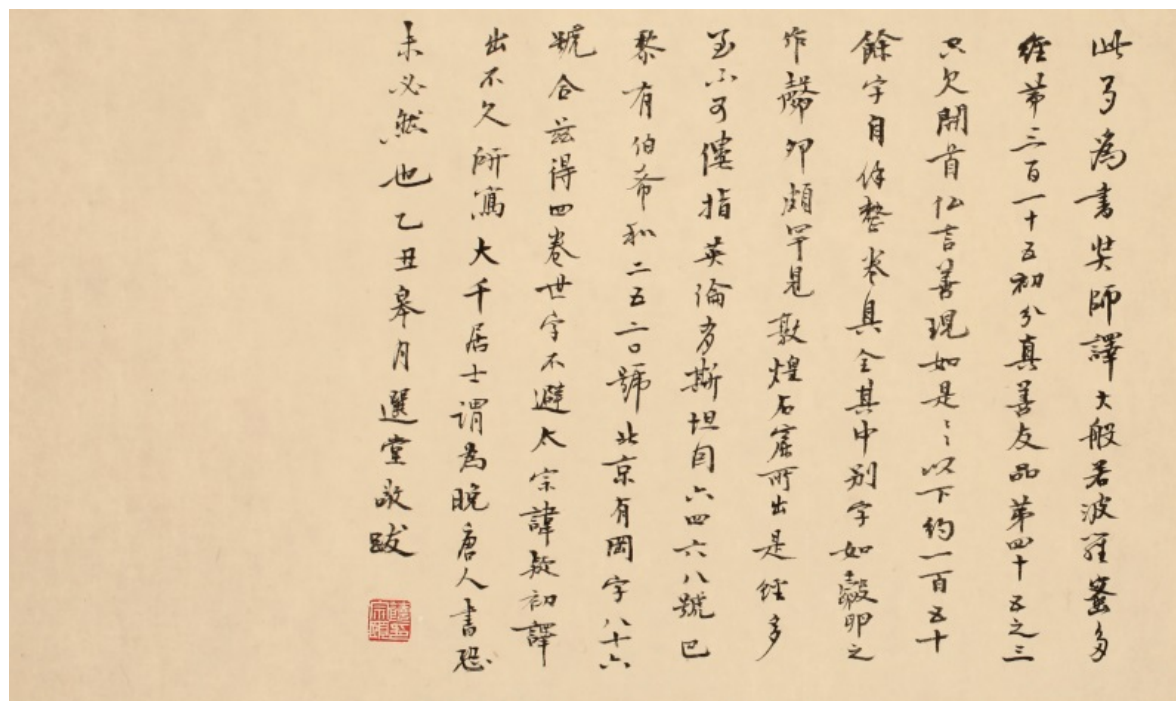 此即為書奘師譯大般若波羅蜜多
經第三百一十五初分真善友品第四十五之三
只欠開首仏言善現如是〻以下約一百五十
餘字自餘整卷具全其中別字如㲉卵之
作 卵頗罕見敦煌石窟所出是經多
至不可僂指英倫有斯坦因六四六八號巴
黎有伯希和二五二〇號北京有岡字八十六
號合茲得四卷世字不避太宗諱疑初譯
出不久所寫大千居士謂為晚唐人書恐
未必然也乙丑皋月選堂敬跋
饒宗頤